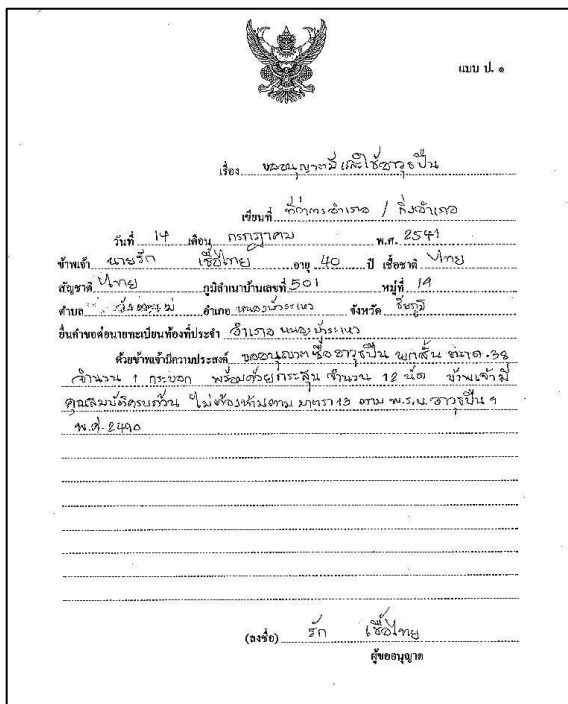 แบบ ป. ๑
เรื่อง ขออนุญาตมีและใช้อาวุธปืน
เขียนที่ ที่ว่าการอำเภอ / กิ่งอำเภอ
วันที่ 14 เดือน กรกฎาคม พ.ศ. 2541
ข้าพเจ้า นายรัก เชื้อไทย อายุ 40 ปี เชื้อชาติ ไทย
สัญชาติ ไทย ภูมิลำเนาบ้านเลขที่ 501 หมู่ที่ 19
ตำบล อำเภอ หนองบัวระเหว จังหวัด ชัยภูมิ
ยื่นคำขอต่อนายทะเบียนท้องที่ประจำ อำเภอ หนองบัวระเหว
ด้วยข้าพเจ้ามีความประสงค์ ขออนุญาตซื้ออาวุธปืน พกสั้น ขนาด .38
จำนวน 1 กระบอก พร้อมด้วยกระสุน จำนวน 12 นัด ข้าพเจ้ามี
คุณสมบัติครบถ้วน ไม่ต้องห้ามตาม มาตรา 13 ตาม พ.ร.บ. อาวุธปืน ฯ
พ.ศ. 2490
(ลงชื่อ) รัก เชื้อไทย
ผู้ขออนุญาต